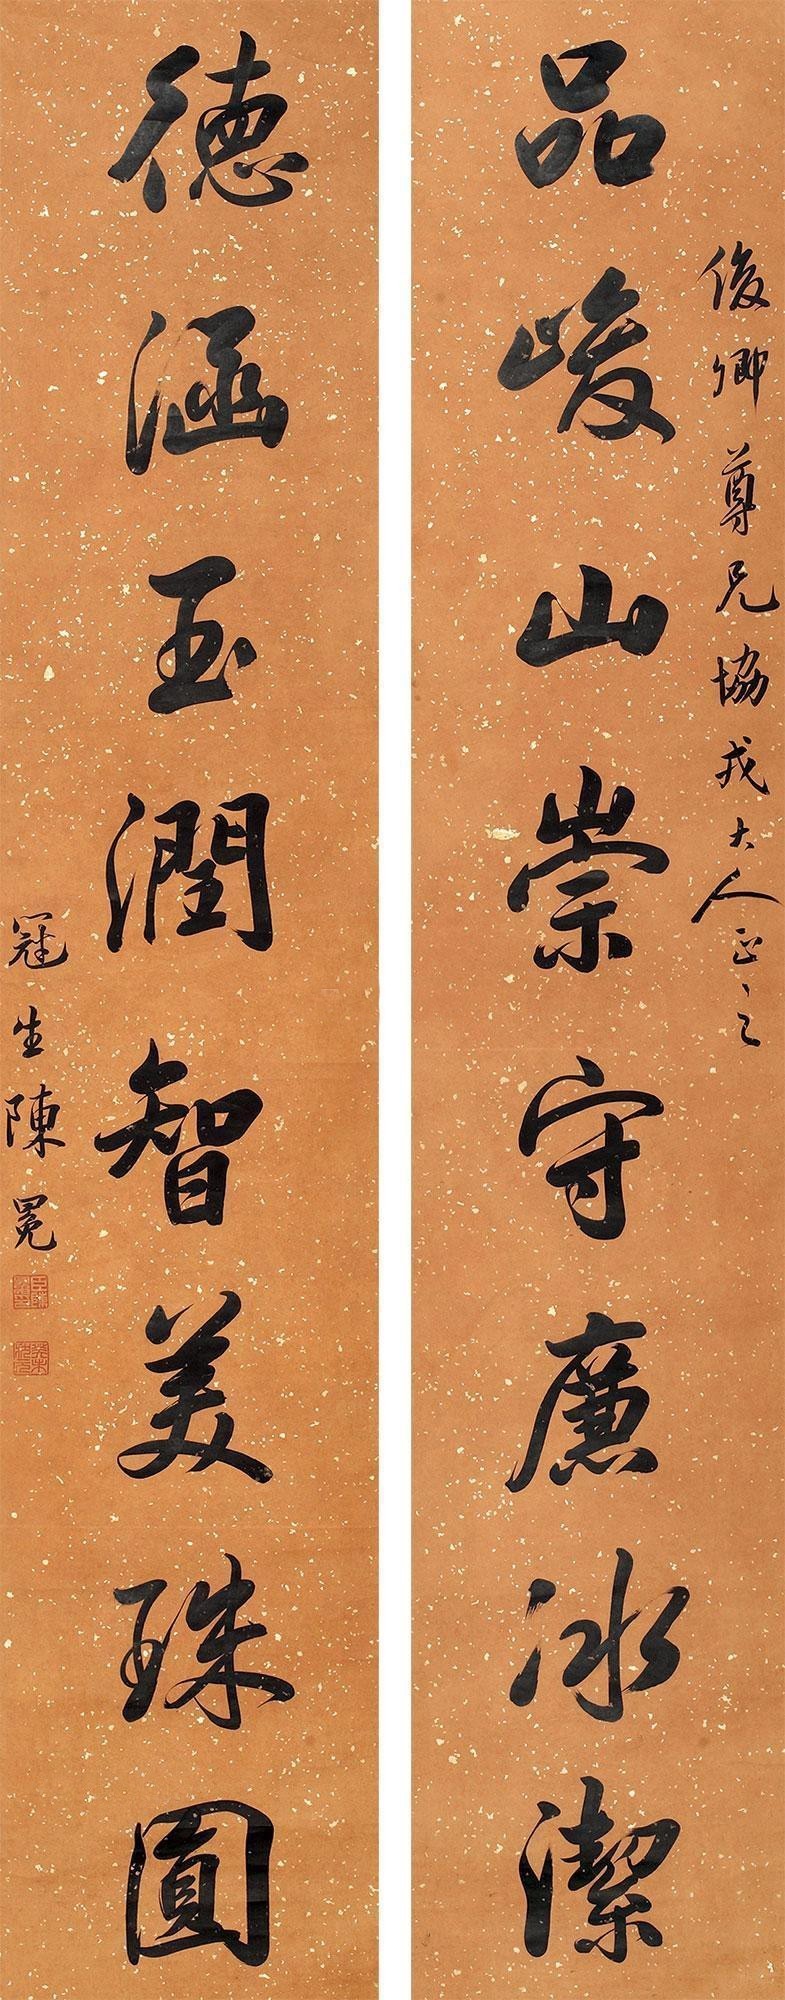 俊卿尊兄協戎大人正之
品峻山崇守廉冰潔
德涵玉潤智美珠圓
冠生陳冕